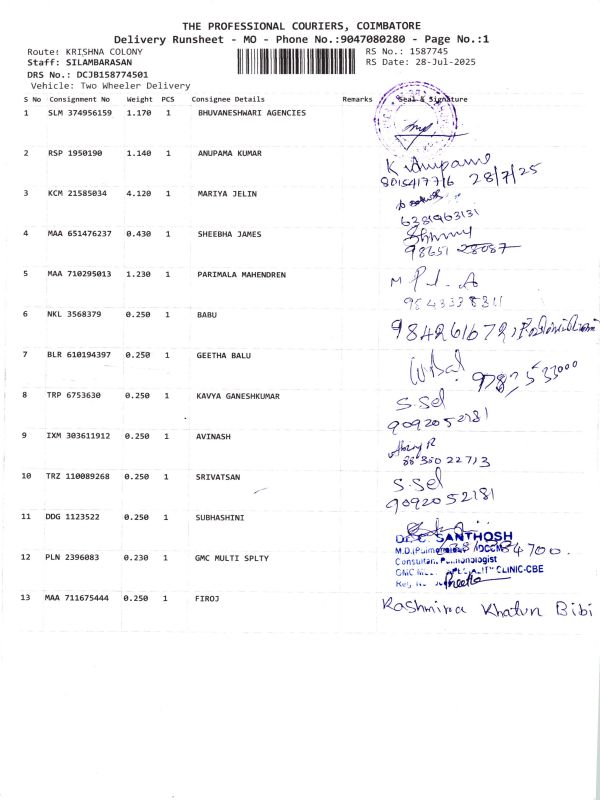 THE PROFESSIONAL COURIERS, COIMBATORE
Delivery Runsheet - MO - Phone No.:9047080280 - Page No.:1
Route: KRISHNA COLONY RS No.: 1587745
Staff: SILAMBARASAN RS Date: 28-Jul-2025
DRS No.: DCJB158774501
Vehicle: Two Wheeler Delivery
S No Consignment No Weight PCS Consignee Details Remarks Seal & Signature
1 SLM 374956159 1.170 1 BHUVANESHWARI AGENCIES
2 RSP 1950190 1.140 1 ANUPAMA KUMAR
K Anupama
8015417716 28/7/25
3 KCM 21585034 4.120 1 MARIYA JELIN
6381963131
4 MAA 651476237 0.430 1 SHEEBHA JAMES
98651 28087
5 MAA 710295013 1.230 1 PARIMALA MAHENDREN
9543338811
6 NKL 3568379 0.250 1 BABU
984261672,
7 BLR 610194397 0.250 1 GEETHA BALU
8 TRP 6753630 0.250 1 KAVYA GANESHKUMAR
S.Sel
9092052181
9 IXM 303611912 0.250 1 AVINASH
10 TRZ 110089268 0.250 1 SRIVATSAN
S.Sel
9092052181
11 DDG 1123522 0.250 1 SUBHASHINI
Dr. C. SANTHOSH
12 PLN 2396083 0.230 1 GMC MULTI SPLTY
Consultant Pulmonologist
CLINIC-CBE
13 MAA 711675444 0.250 1 FIROJ
Kashmira Khatun Bibi